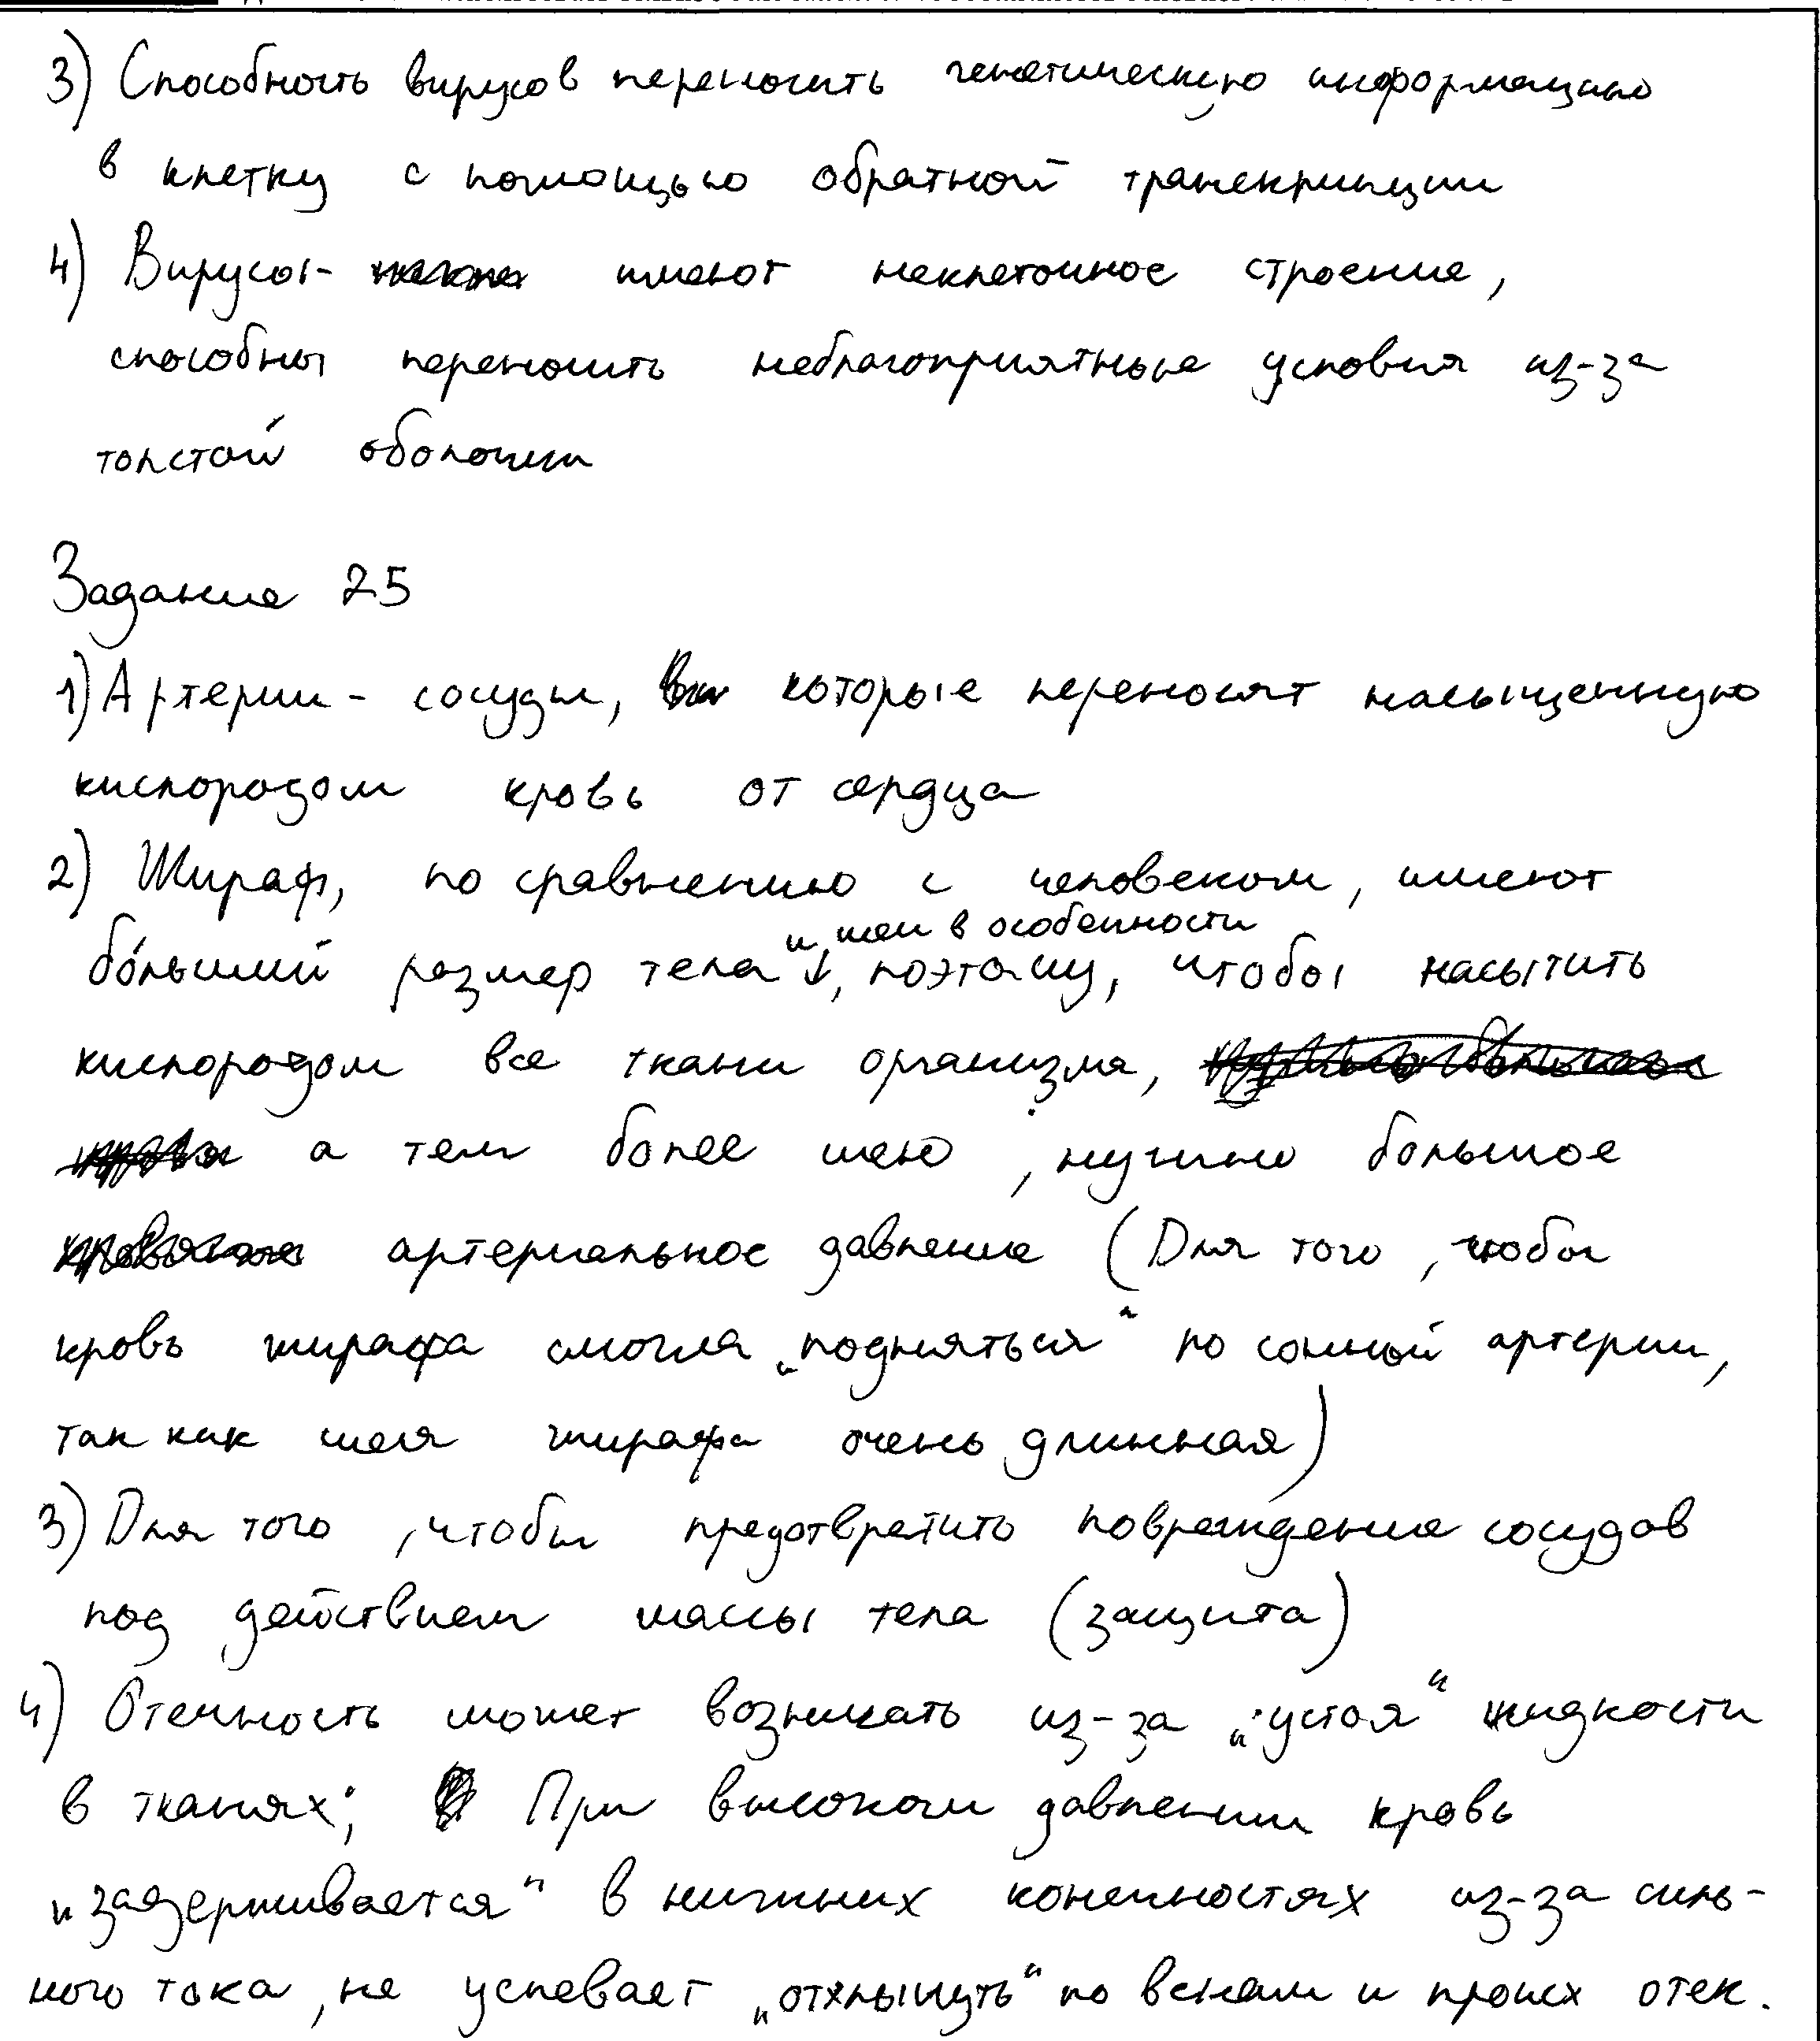 3) Способность вирусов переносить генетическую информацию
в клетку с помощью обратной транскрипции
4) Вирусы - имеют неклеточное строение,
способны переносить неблагоприятные условия из-за
толстой оболочки
Задание 25
1) Артерии - сосуды, которые переносят насыщенную
кислородом кровь от сердца
2) Жираф, по сравнению с человеком, имеют
и шеи в особенности
бо́льший размер тела, поэтому, чтобы насытить
кислородом все ткани организма,
а тем более шею, нужно большое
артериальное давление (Для того, чтобы
кровь жирафа смогла „подняться“ по сонной артерии,
так как шея жирафа очень длинная)
3) Для того, чтобы предотвратить повреждение сосудов
под действием массы тела (защита)
4) Отечность может возникать из-за „устоя“ жидкости
в тканях; При высоком давлении кровь
„задерживается“ в нижних конечностях из-за силь-
ного тока, не успевает „отхлынуть“ по венам и происх отек.